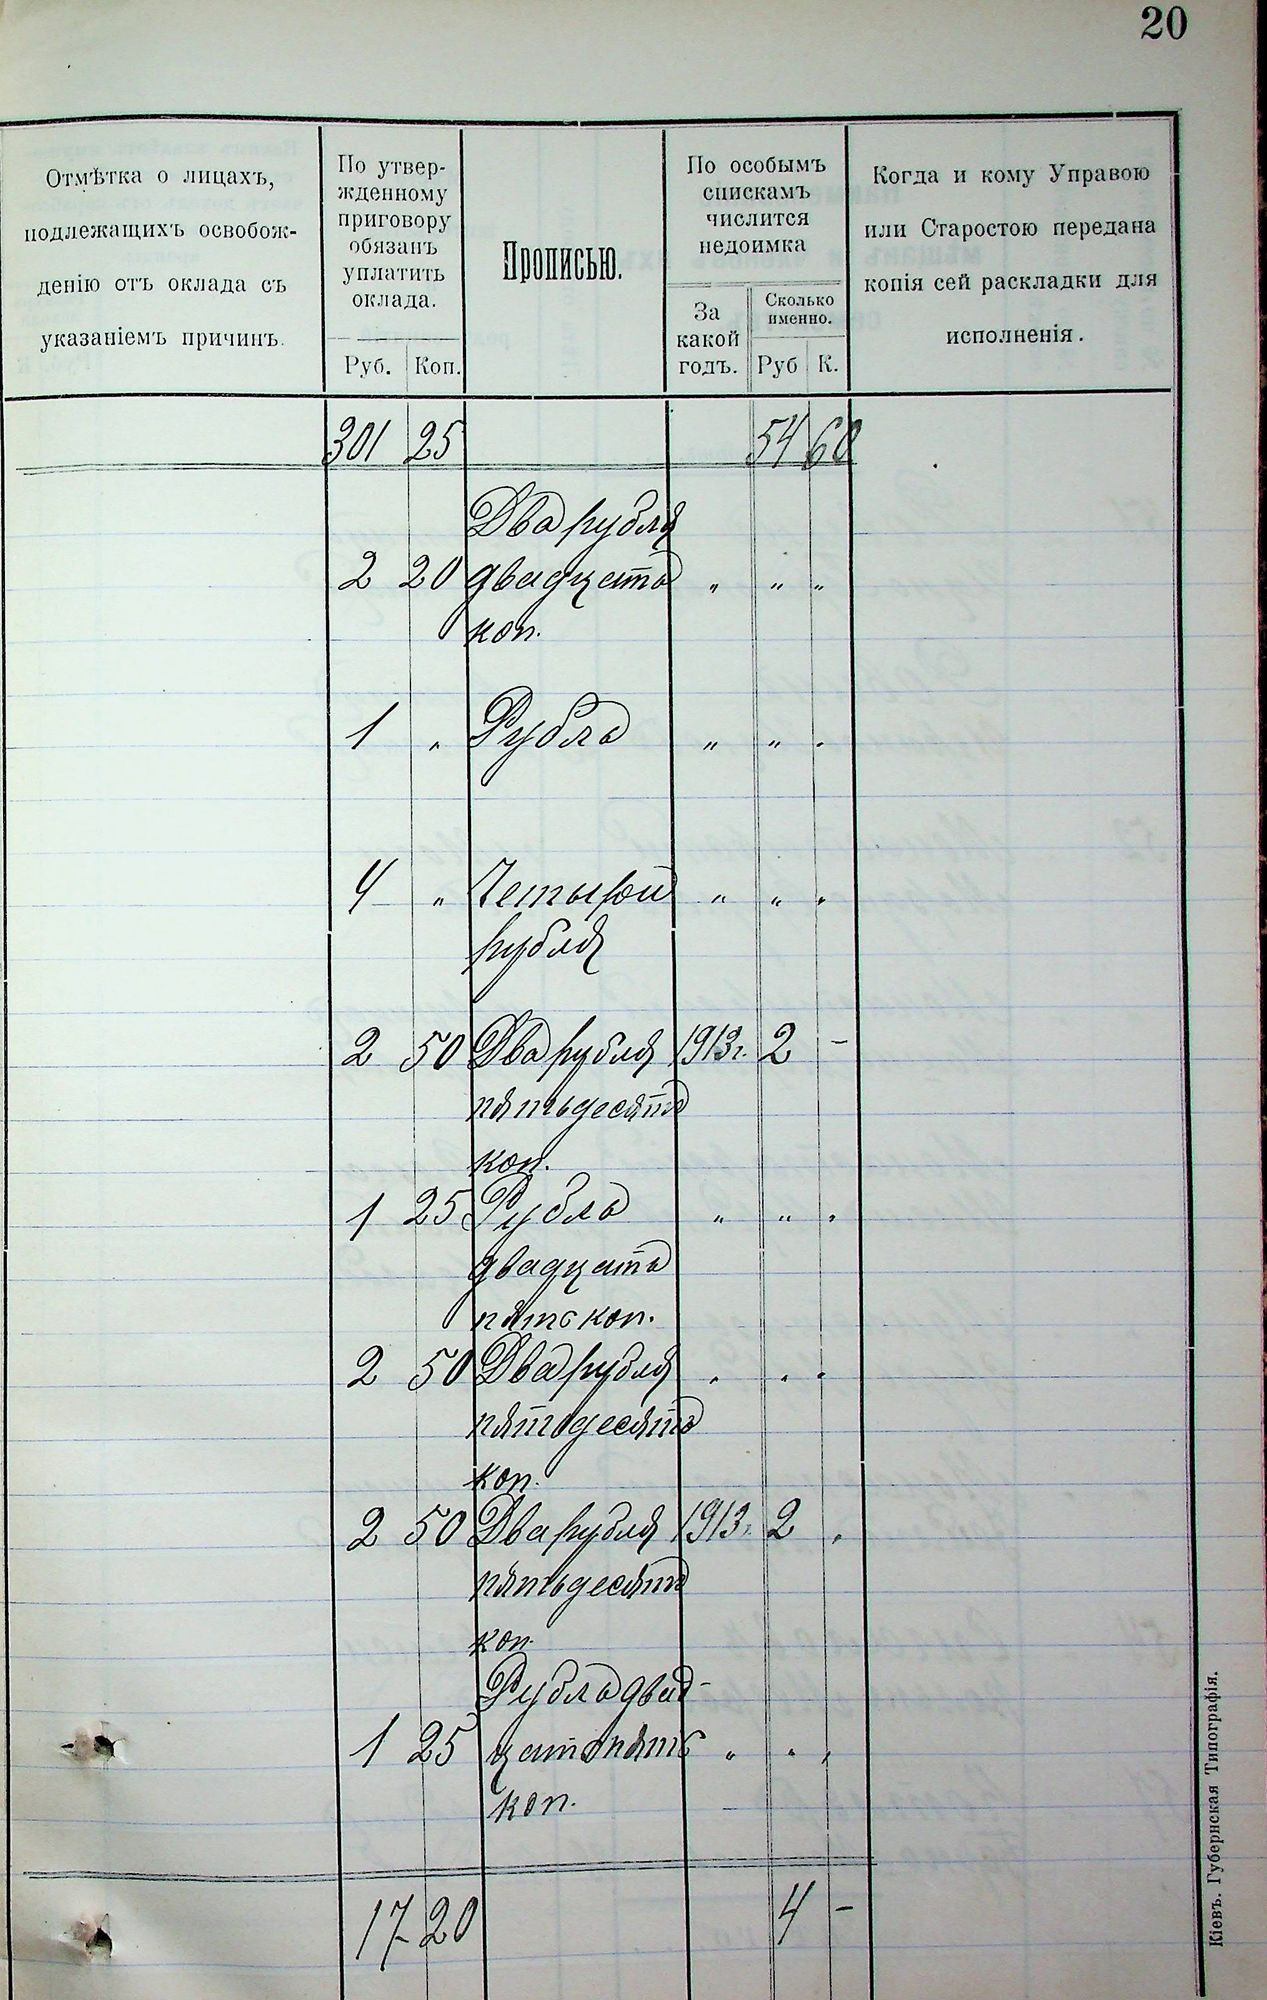 20
Отмѣтка о лицахъ,
подлежащихъ освобож-
денію отъ оклада съ
указаніемъ причинъ.
По утвер-
жденному
приговору
обязанъ
уплатить
оклада.
Руб. Коп.
Прописью.
По особымъ
спискамъ
числится
недоимка
За
какой
годъ.
Сколько
именно.
Руб К.
Когда и кому Управою
или Старостою передана
копія сей раскладки для
исполненія.
301 25 54 60
Два рубля
2 20 двадцать „ „ „
коп.
1 „ Рубль „ „ „
4 „ Четыре „ „ „
рубля
2 50 Два рубля 1913г. 2 –
пятьдесятъ
коп.
1 25 Рубль „ „ „
двадцать
пять коп.
2 50 Два рубля „ „ „
пятьдесятъ
коп.
2 50 Два рубля 1913г. 2 „
пятьдесятъ
коп.
Рубль двад-
1 25 цать пять „ „ „
коп.
17 20 4 –
Кіевъ. Губернская Типографія.